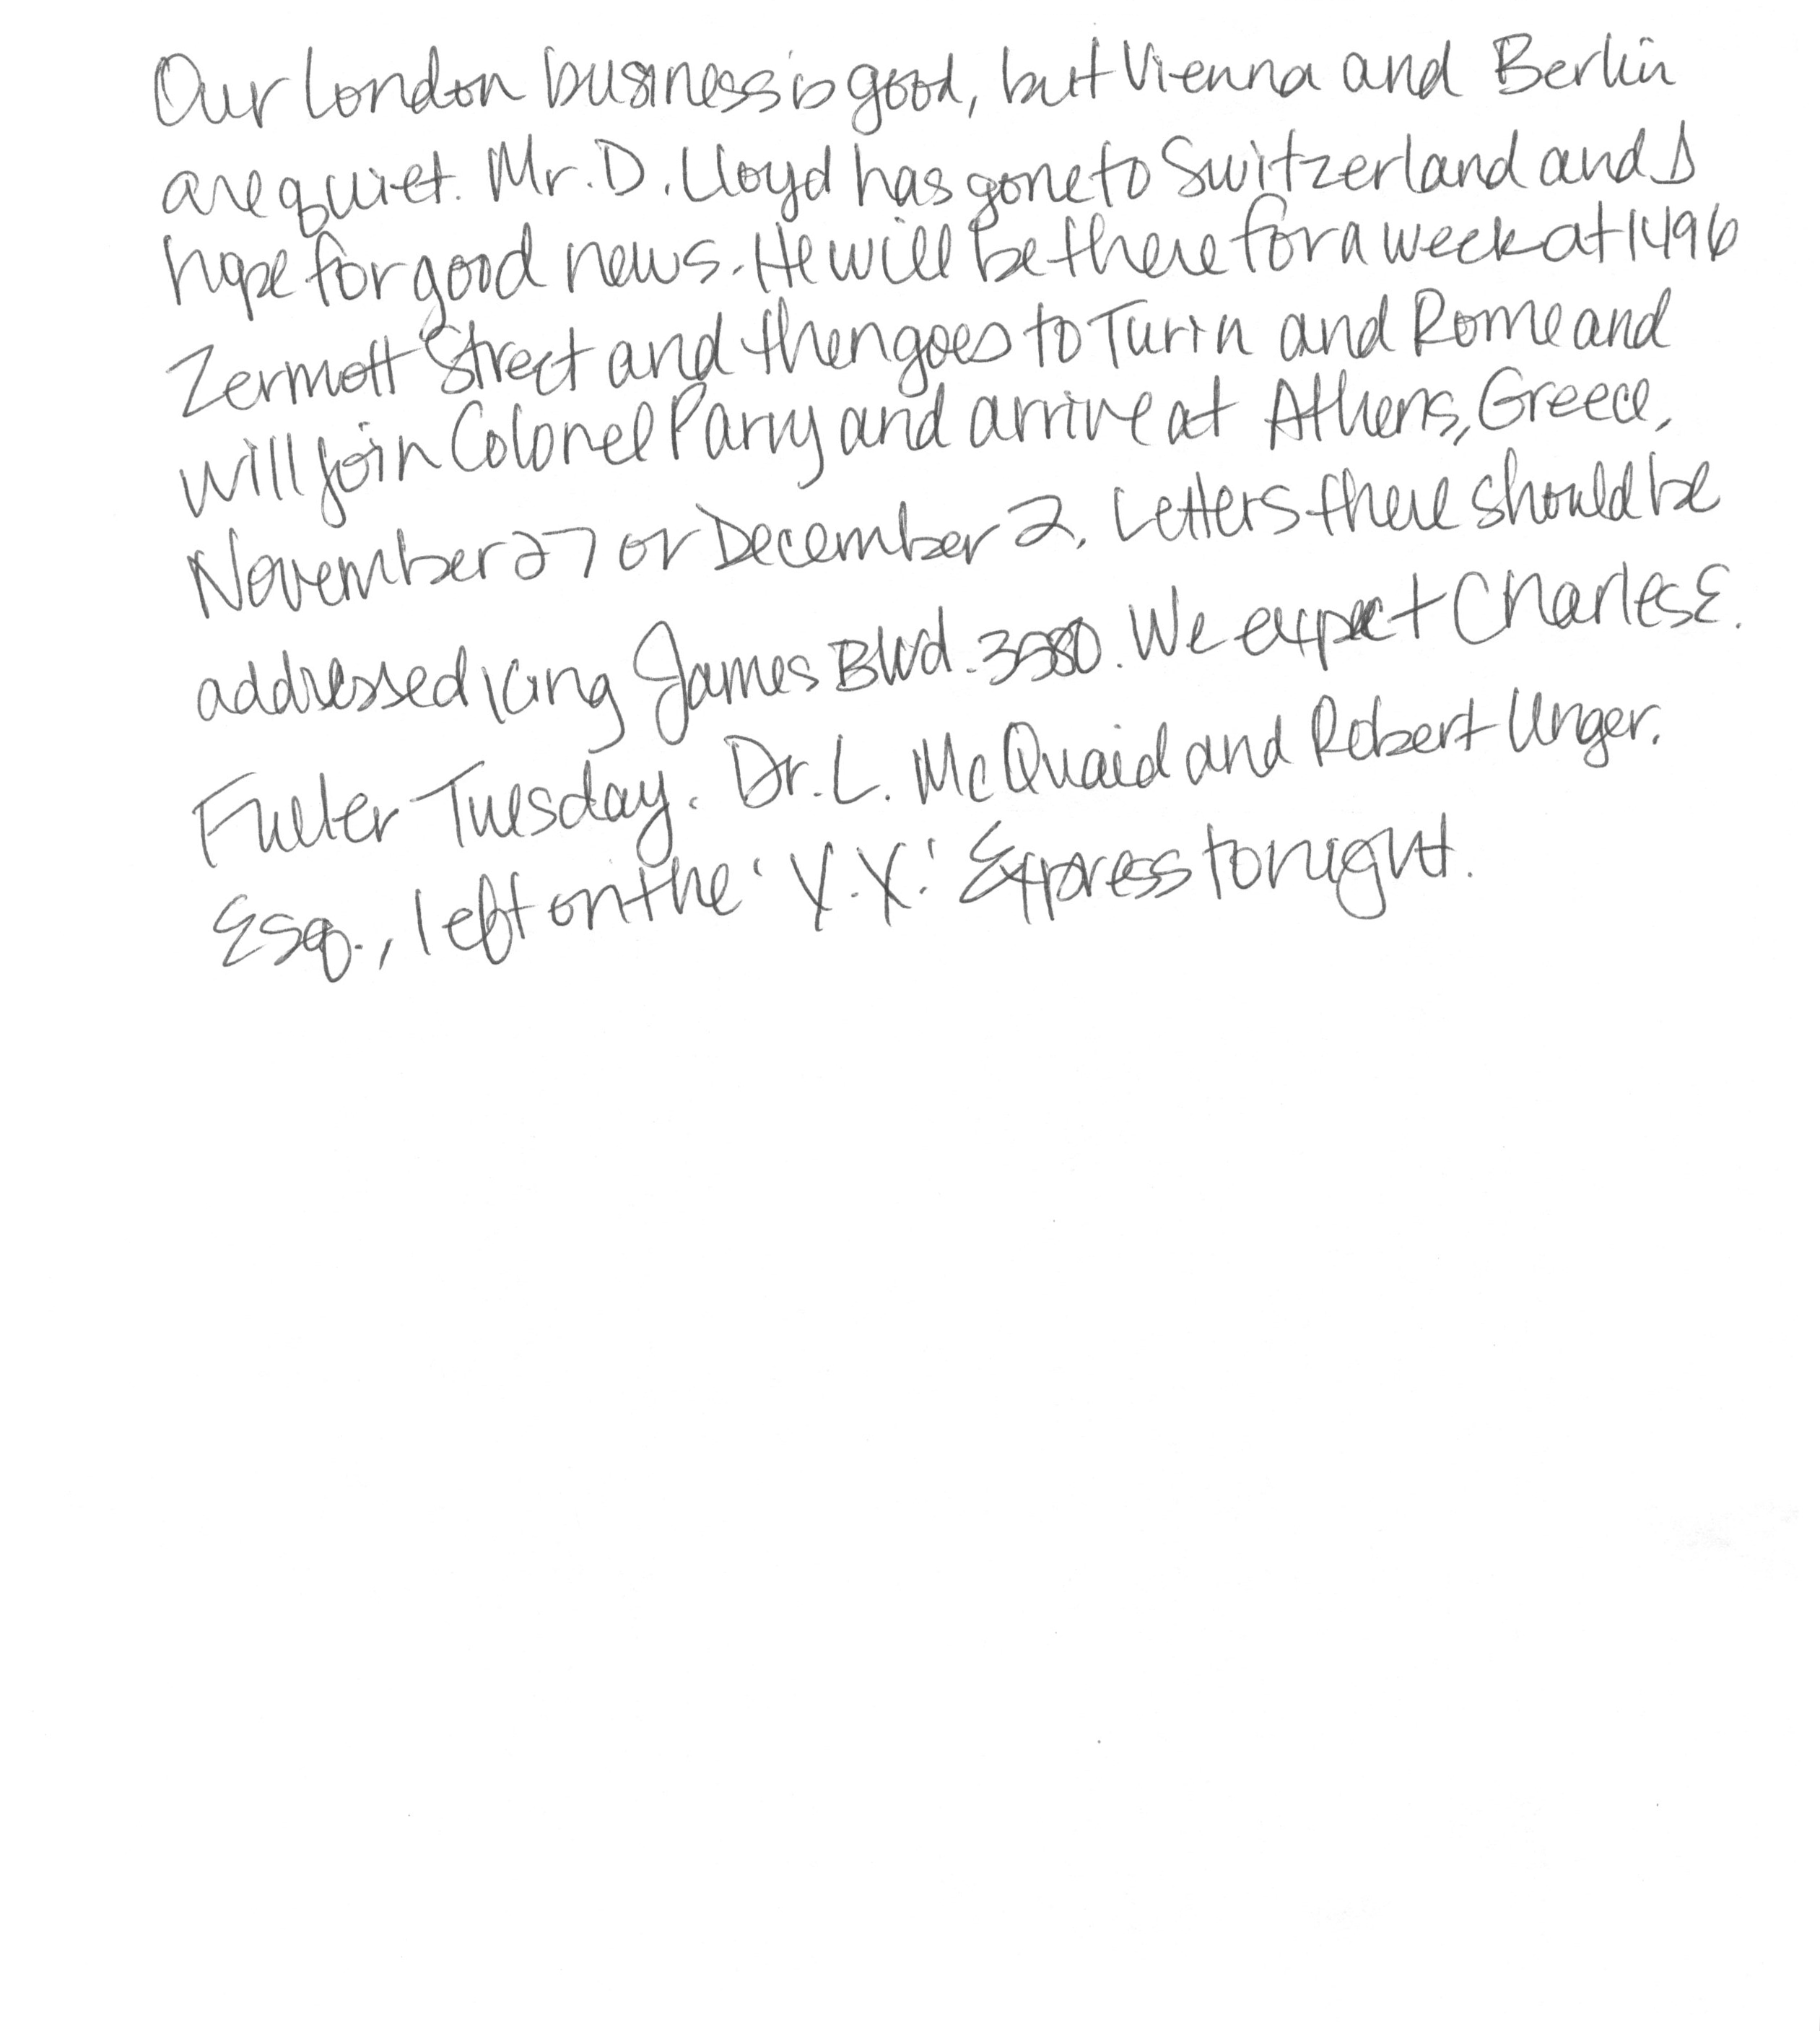 Our London business is good, but Vienna and Berlin
are quiet. Mr. D. Lloyd has gone to Switzerland and I
hope for good news. He will be there for a week at 1496
Zermott Street and then goes to Turin and Rome and
will join Colonel Parry and arrive at Athens, Greece,
November 27 or December 2. Letters there should be
addressed King James Blvd. 3580. We expect Charles E.
Fuller Tuesday. Dr. L. McQuaid and Robert Unger.
Esq., left on the 'Y.X.' Express tonight.